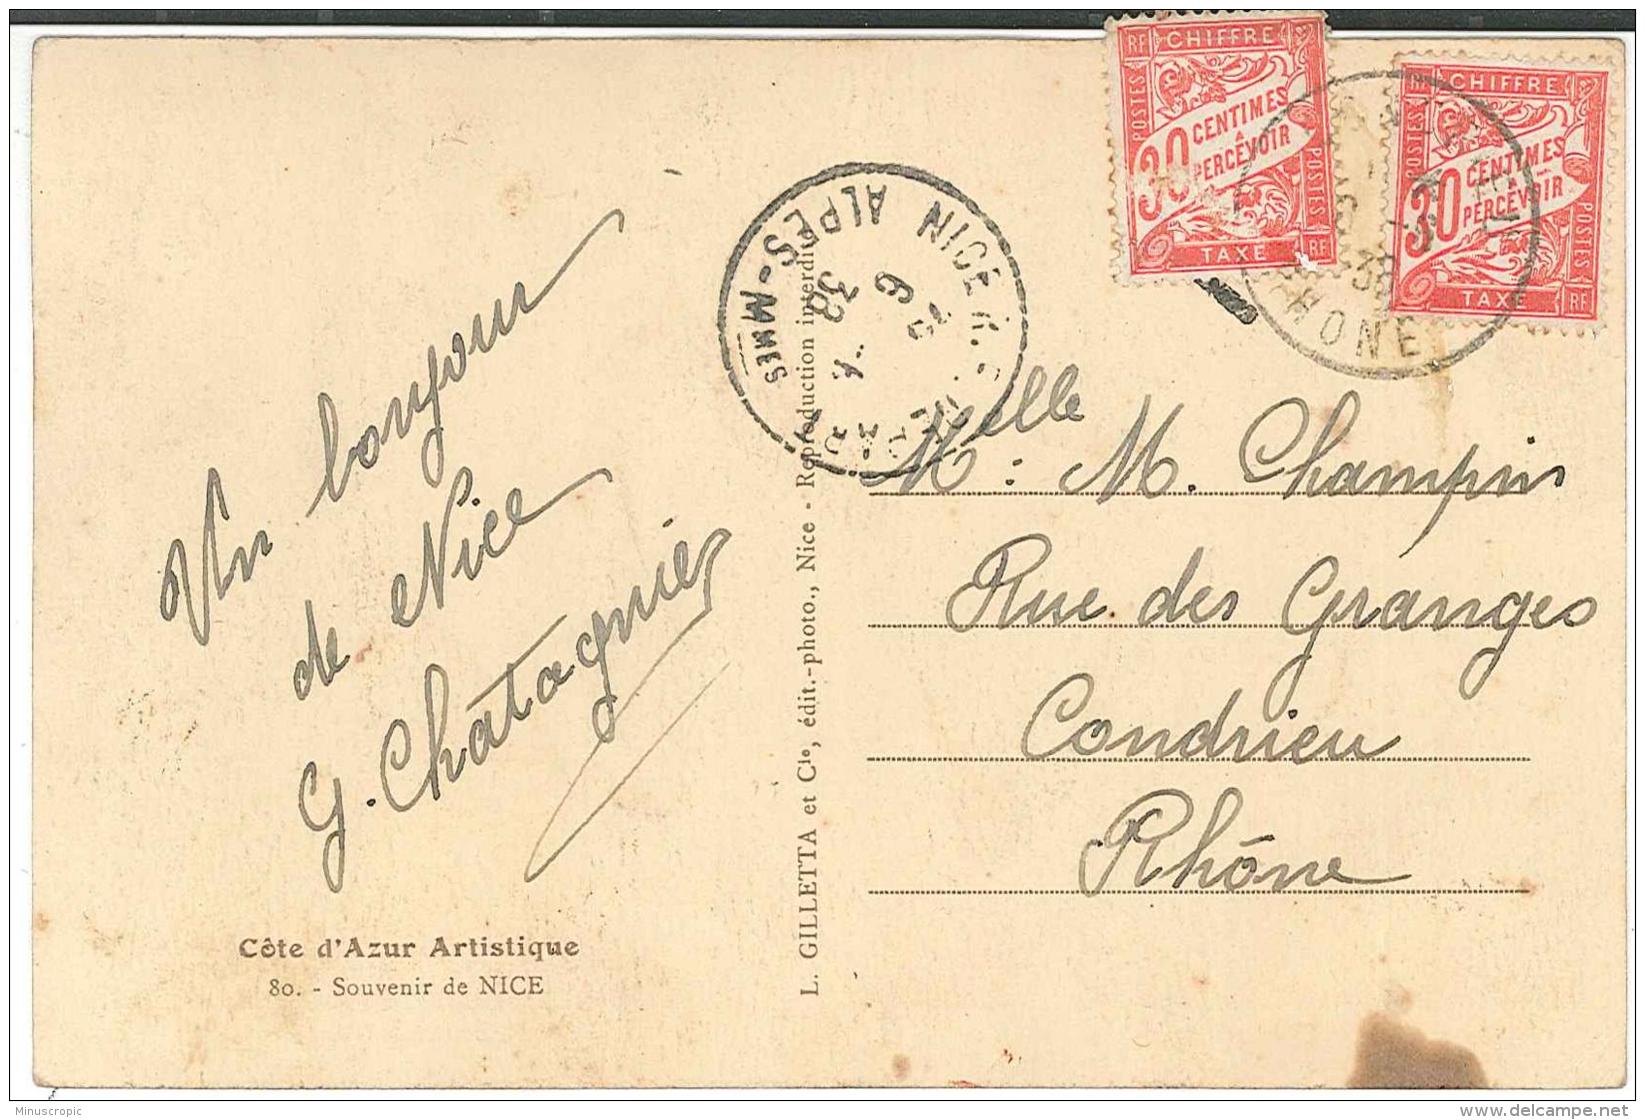 RF CHIFFRE
POSTES
30 CENTIMES
A
PERCEVOIR
POSTES
TAXE RF
RF CHIFFRE
POSTES
30 CENTIMES
A
PERCEVOIR
POSTES
TAXE RF
RHONE
38
NICE
ALPES-MMES
38
Un bonjour
de Nice
G. Chatagnier
Côte d'Azur Artistique
80. - Souvenir de NICE
L. GILLETTA et Cie, édit.-photo., Nice - Reproduction interdite
Melle : M. Champin
Rue des Granges
Condrieu
Rhône
Minuscropic
www.delcampe.net